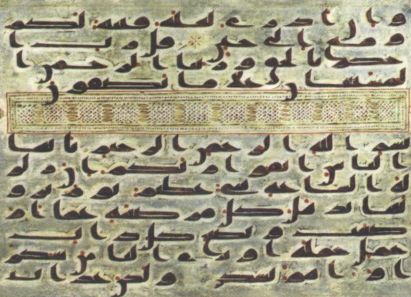 و ان ادرى لعله فتنة لكم
و متع الى حين قل رب ا
حكم بالحق و ربنا الرحمن ا
لمستعان على ما تصفون
بسم الله الرحمن الرحيم يايها
الناس اتقوا ربكم ان زلز
لة الساعة شى عظيم يوم ترو
نها تذهل كل مرضعة عما ا
رضعت و تضع كل ذات
حمل حملها و ترى الناس سكر
ى و ما هم بسكرى و لكن عذاب